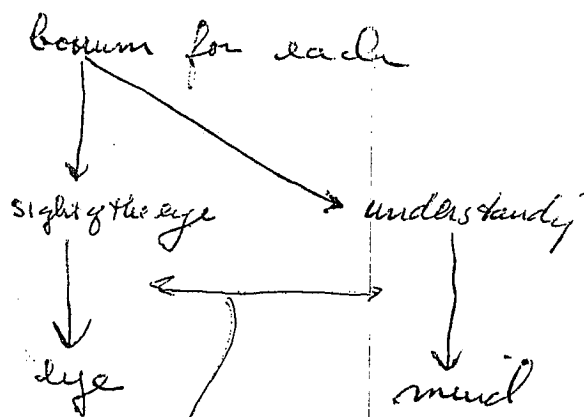 bonum for each
sight of the eye understandg
eye mind